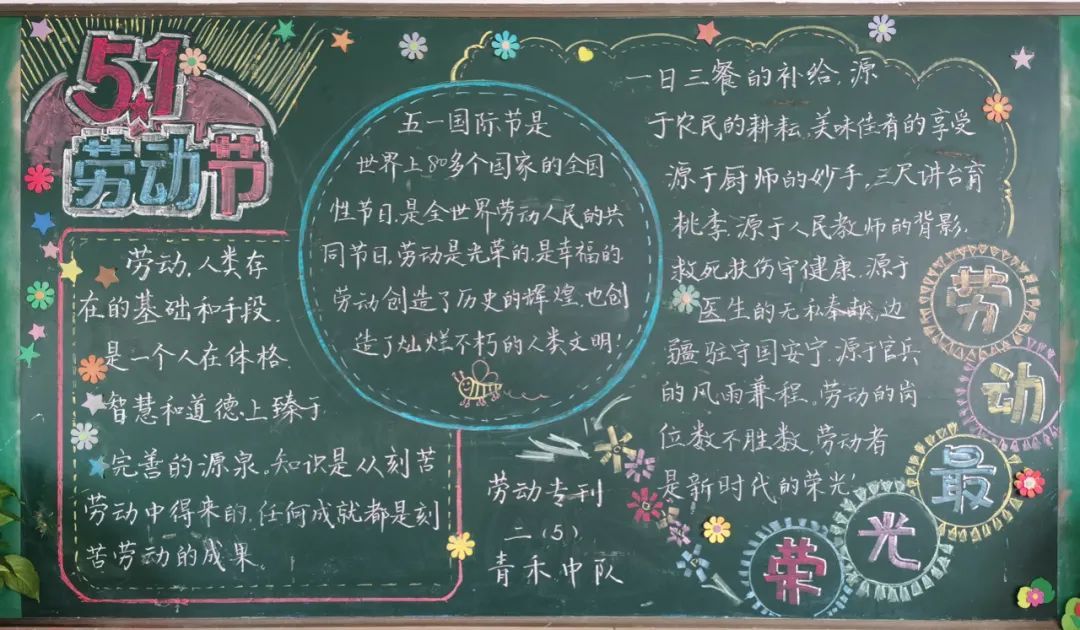 51
劳动节
劳动,人类存
在的基础和手段.
是一个人在体格.
智慧和道德.上臻于
完善的源泉.知识是从刻苦
劳动中得来的.任何成就都是刻
苦劳动的成果。
五一国际节是
世界上80多个国家的全国
性节日.是全世界劳动人民的共
同节日.劳动是光荣的.是幸福的.
劳动创造了历史的辉煌.也创
造了灿烂不朽的人类文明!
劳动专刊
二(5)
青禾中队
一日三餐的补给,源
于农民的耕耘,美味佳肴的享受
源于厨师的妙手,三尺讲台育
桃李,源于人民教师的背影.
救死扶伤守健康.源于
医生的无私奉献,边
疆驻守国安宁.源于官兵
的风雨兼程.劳动的岗
位数不胜数,劳动者
是新时代的荣光.
劳
动
最
光
荣